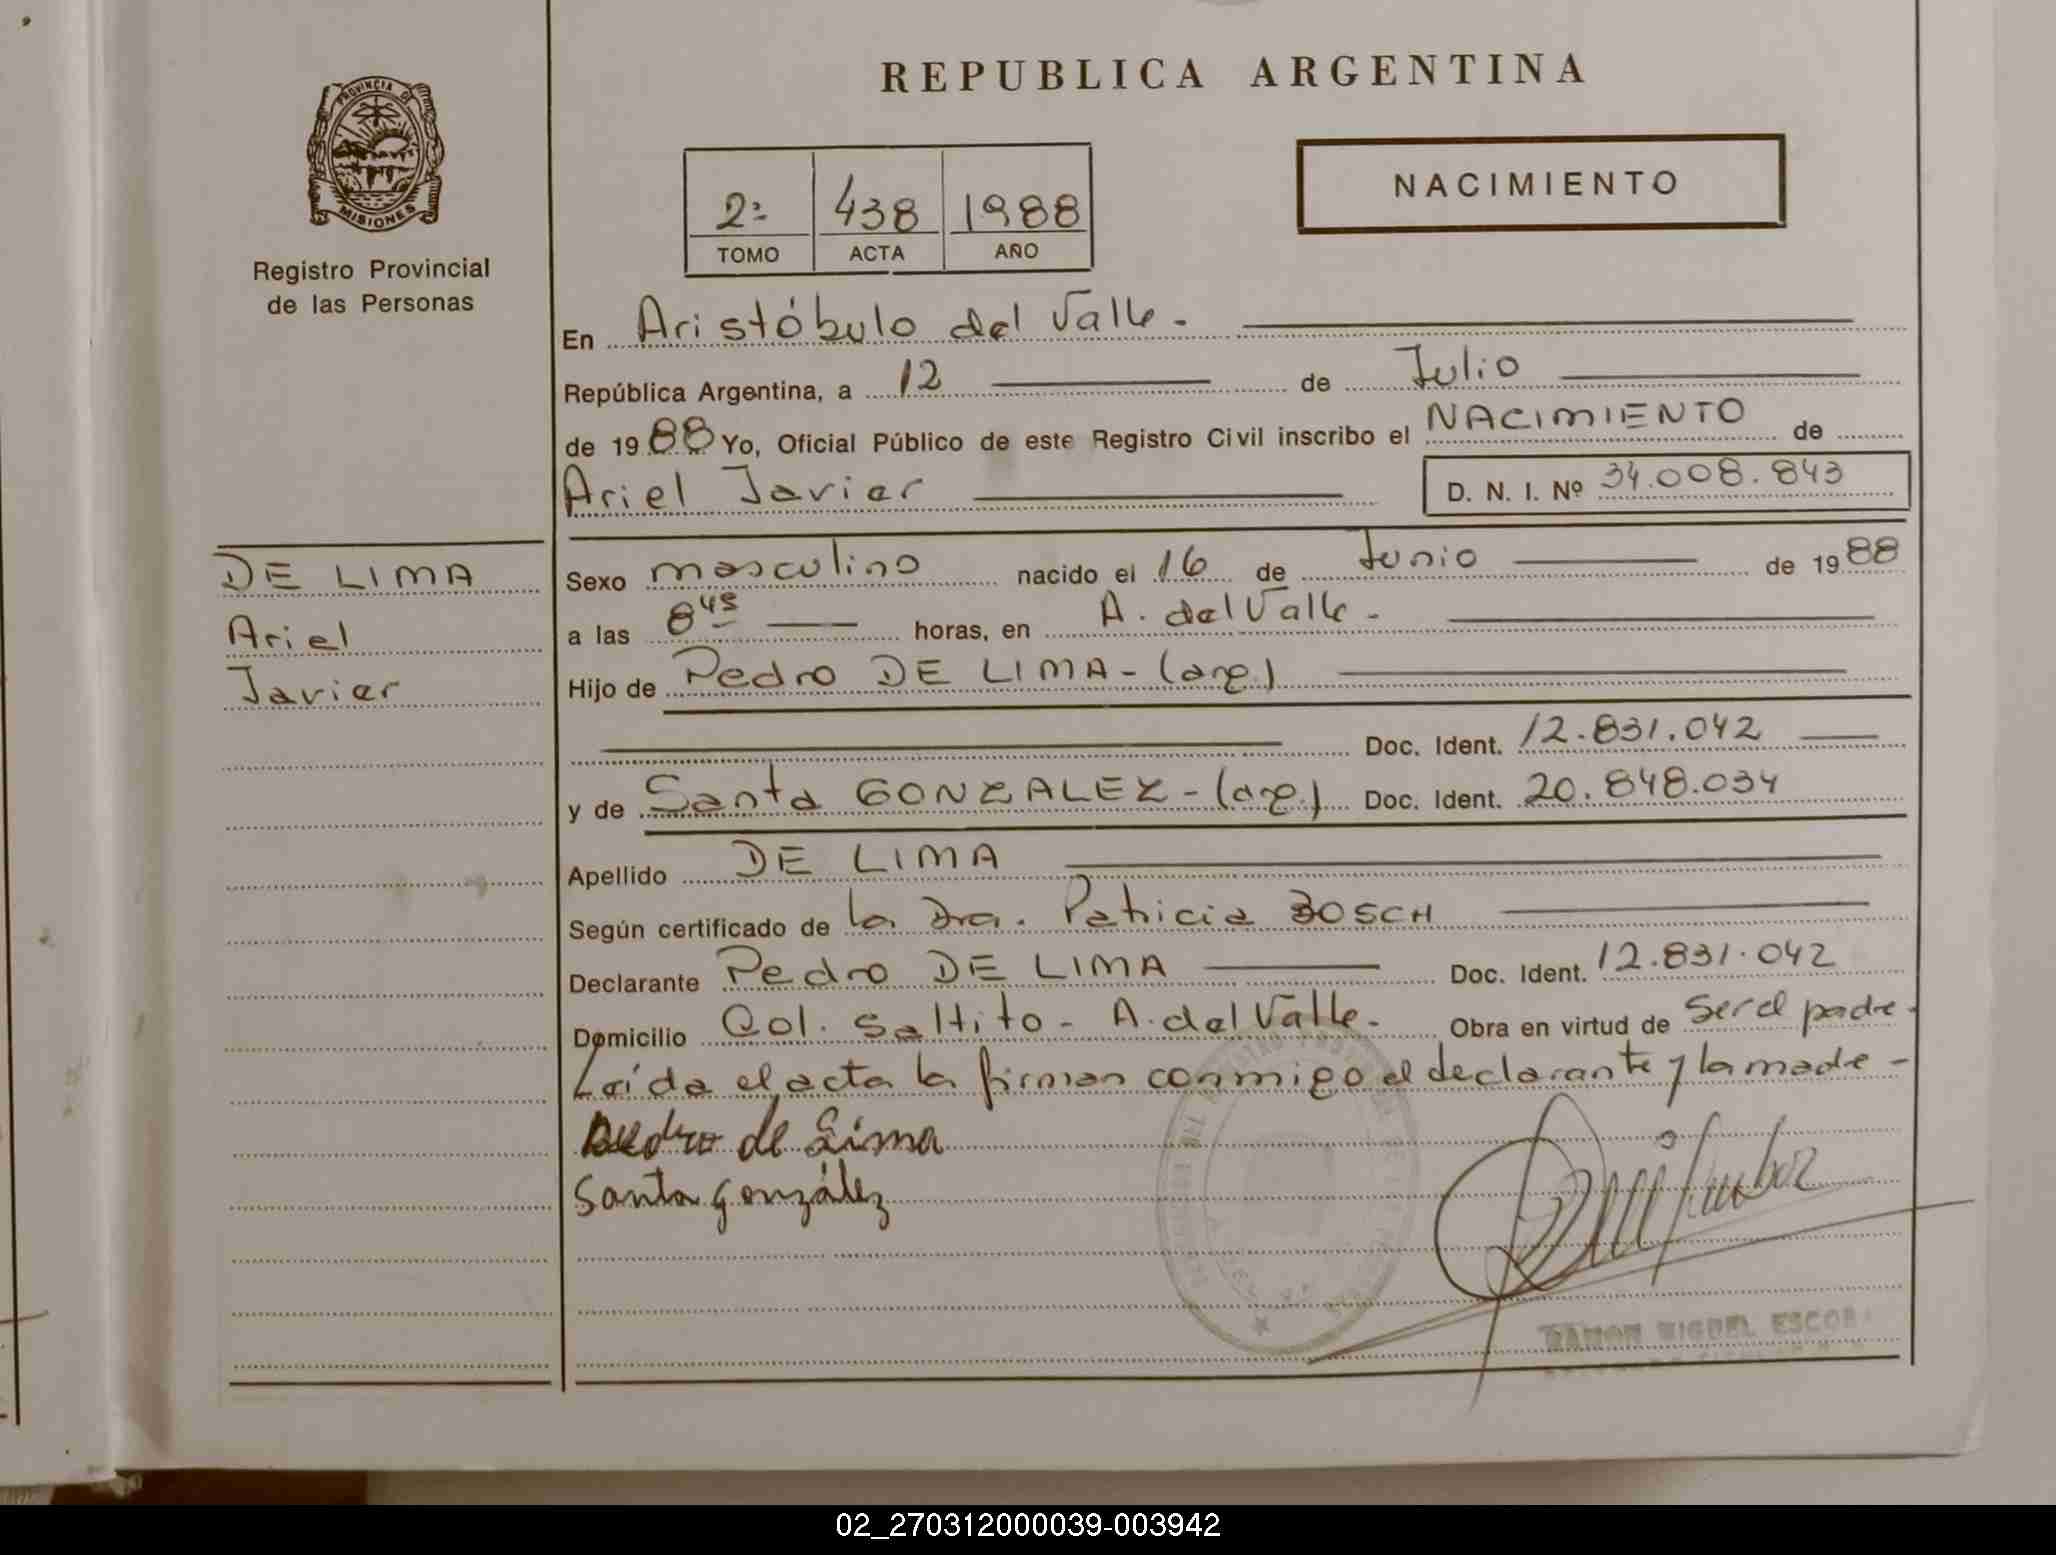 REPUBLICA ARGENTINA
PROVINCIA DE
MISIONES
Registro Provincial
de las Personas
2º 438 1988
TOMO ACTA AÑO
NACIMIENTO
En Aristóbulo del Valle.-
República Argentina, a 12 de Julio
de 1988 Yo, Oficial Público de este Registro Civil inscribo el NACIMIENTO de
Ariel Javier
D. N. I. Nº 34.008.843
DE LIMA
Ariel
Javier
Sexo masculino nacido el 16 de Junio de 1988
a las 8 45 horas, en A. del Valle.-
Hijo de Pedro DE LIMA - (arg.)
Doc. Ident. 12.831.042
y de Santa GONZALEZ - (arg.) Doc. Ident. 20.848.034
Apellido DE LIMA
Según certificado de la Dra. Patricia BOSCH
Declarante Pedro DE LIMA Doc. Ident. 12.831.042
Domicilio Col. Saltito - A. del Valle.- Obra en virtud de ser el padre.
Leída el acta la firman conmigo el declarante y la madre -
Pedro de Lima
Santa González
RAMON MIGUEL
02_270312000039-003942